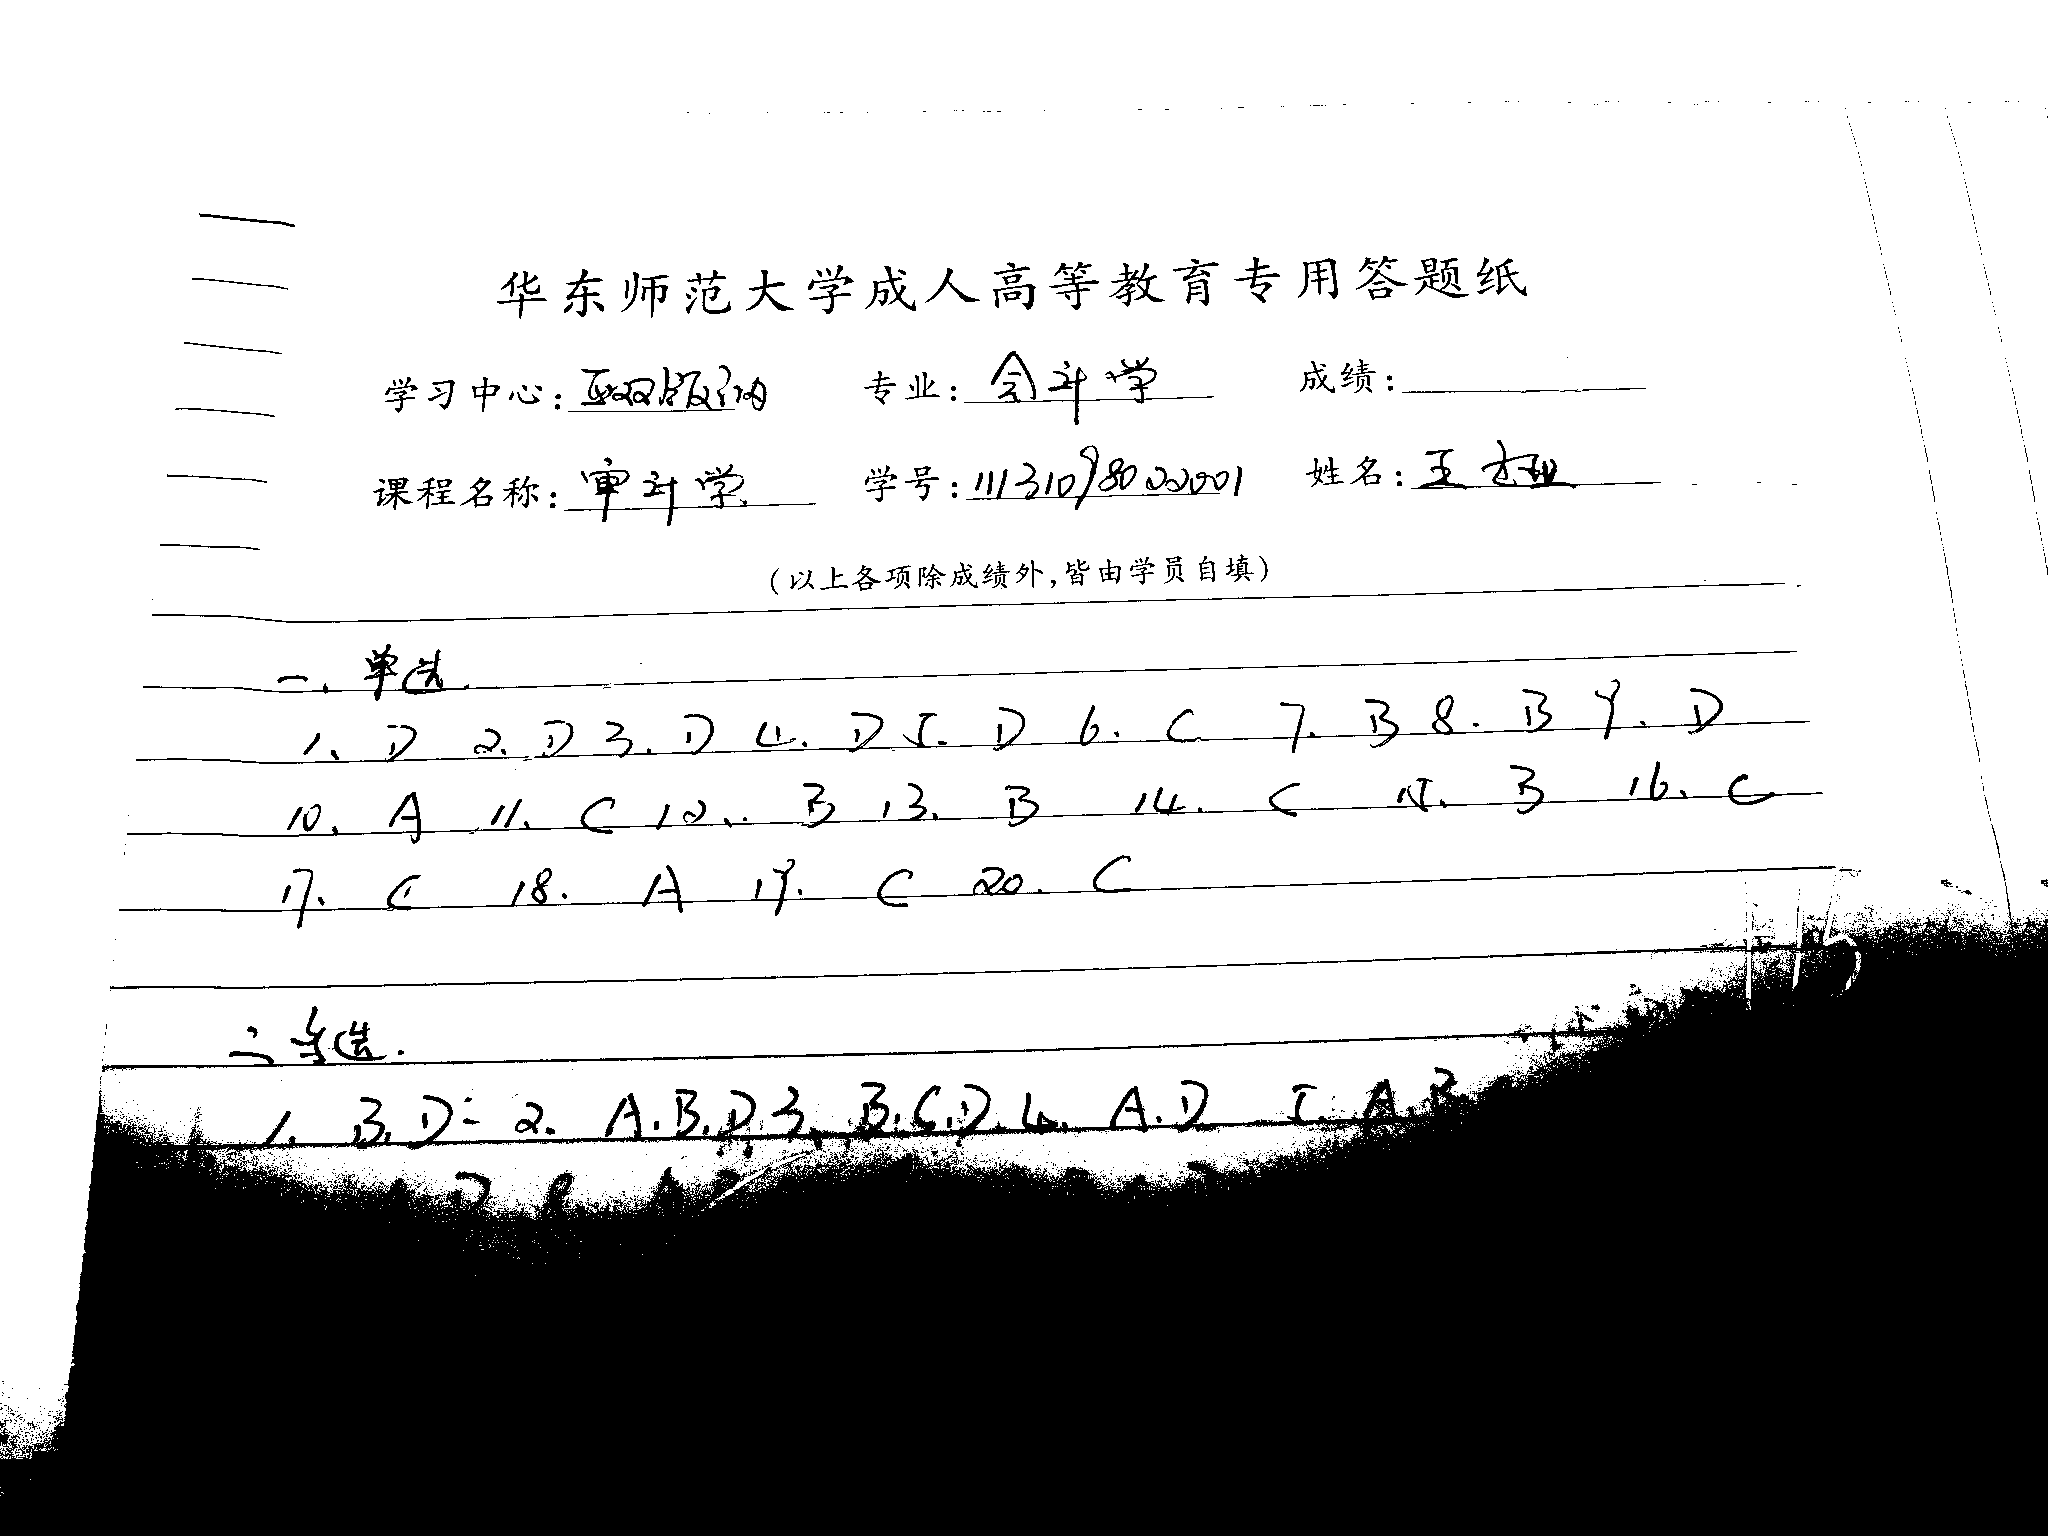 华东师范大学成人高等教育专用答题纸
学习中心: 西双版纳 专业: 会计学 成绩:
课程名称: 审计学 学号: 11131098022001 姓名: 王
(以上各项除成绩外,皆由学员自填)
一、单选
1、D 2、D 3、D 4、D 5、D 6、C 7、B 8、B 9、D
10、A 11、C 12、B 13、B 14、C 15、B 16、C
17、C 18、A 19、C 20、C
二、多选
1、B.D 2、A.B.D 3、B.C.D 4、A.D 5、A.B